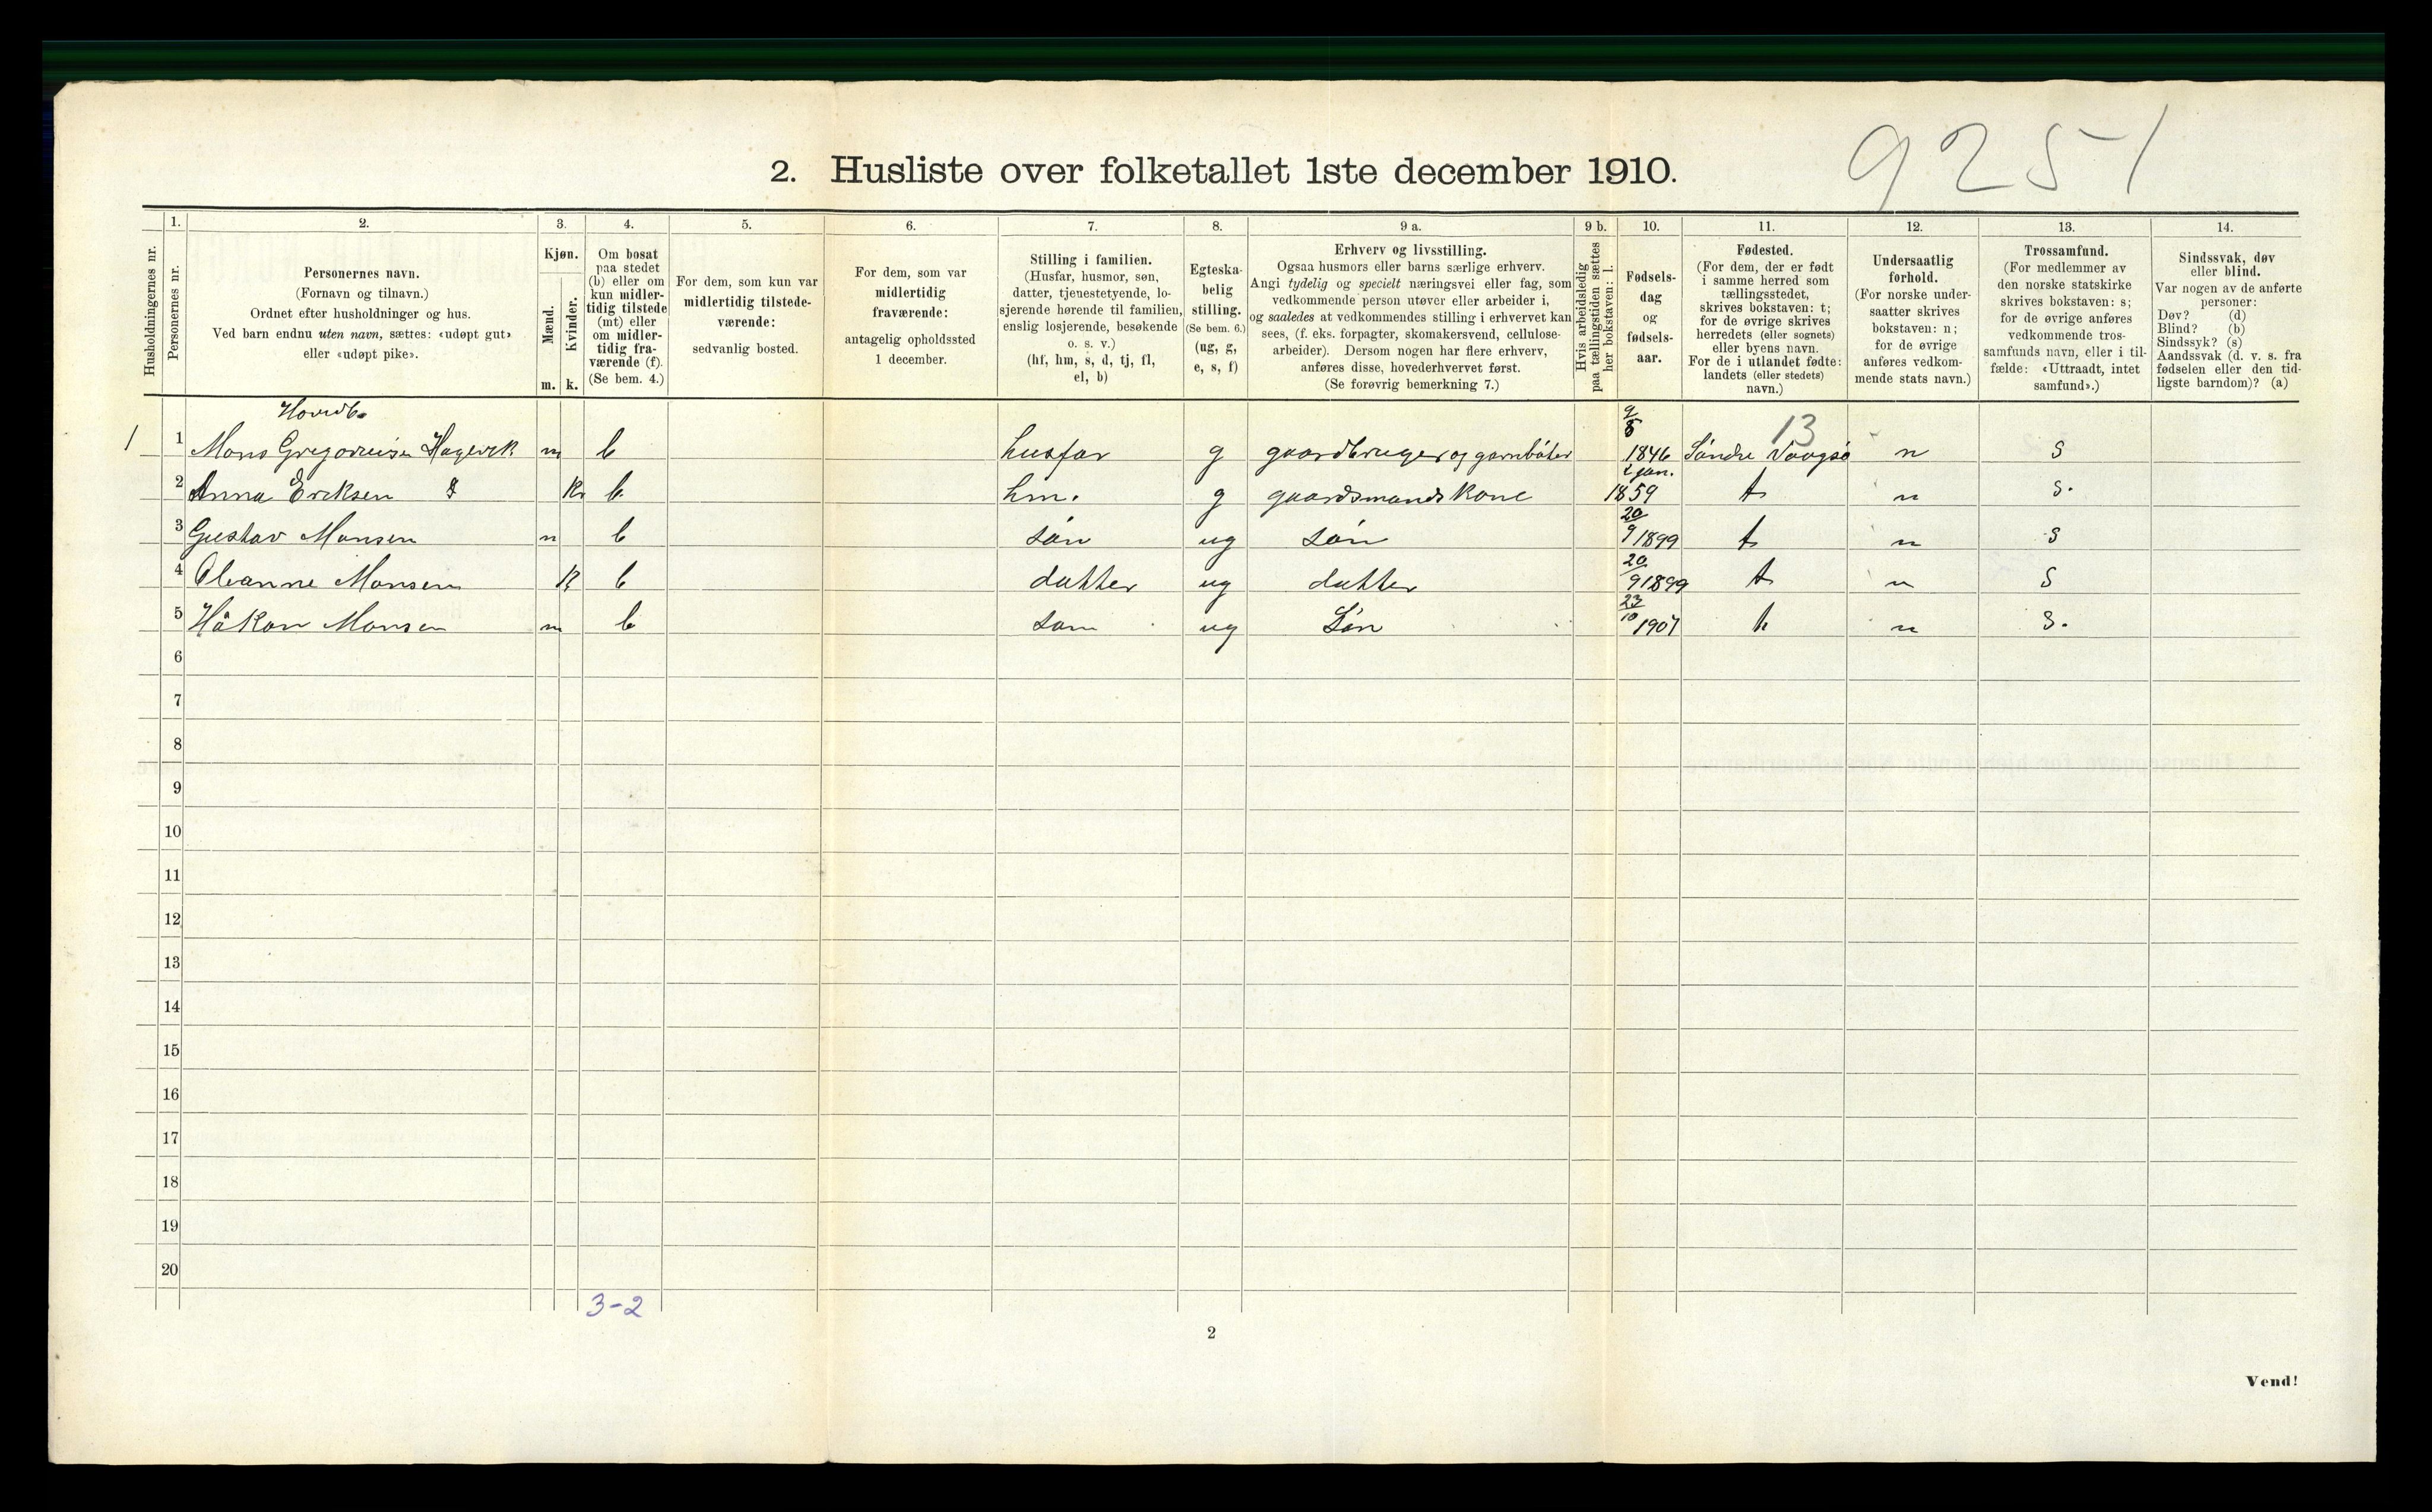 9251
2. Husliste over folketallet 1ste december 1910.
1. 2. 3. 4. 5. 6. 7. 8. 9 a. 9 b. 10. 11. 12. 13. 14.
Husholdningernes nr.
Personernes nr.
Personernes navn.
(Fornavn og tilnavn.)
Ordnet efter husholdninger og hus.
Ved barn endnu uten navn, sættes: «udøpt gut»
eller «udøpt pike».
Kjøn.
Mænd.
Kvinder.
m. k.
Om bosat
paa stedet
(b) eller om
kun midler-
tidig tilstede
(mt) eller
om midler-
tidig fra-
værende (f).
(Se bem. 4.)
For dem, som kun var
midlertidig tilstede-
værende:
sedvanlig bosted.
For dem, som var
midlertidig
fraværende:
antagelig opholdssted
1 december.
Stilling i familien.
(Husfar, husmor, søn,
datter, tjenestetyende, lo-
sjerende hørende til familien,
enslig losjerende, besøkende
o. s. v.)
(hf, hm, s, d, tj, fl,
el, b)
Egteska-
belig
stilling.
(Se bem. 6.)
(ug, g,
e, s, f)
Erhverv og livsstilling.
Ogsaa husmors eller barns særlige erhverv.
Angi tydelig og specielt næringsvei eller fag, som
vedkommende person utøver eller arbeider i,
og saaledes at vedkommendes stilling i erhvervet kan
sees, (f. eks. forpagter, skomakersvend, cellulose-
arbeider). Dersom nogen har flere erhverv,
anføres disse, hovederhvervet først.
(Se forøvrig bemerkning 7.)
Hvis arbeidsledig
paa tællingstiden sættes
her bokstaven: l.
Fødsels-
dag
og
fødsels-
aar.
Fødested.
(For dem, der er født
i samme herred som
tællingsstedet,
skrives bokstaven: t;
for de øvrige skrives
herredets (eller sognets)
eller byens navn.
For de i utlandet fødte:
landets (eller stedets)
navn.)
Undersaatlig
forhold.
(For norske under-
saatter skrives
bokstaven: n;
for de øvrige
anføres vedkom-
mende stats navn.)
Trossamfund.
(For medlemmer av
den norske statskirke
skrives bokstaven: s;
for de øvrige anføres
vedkommende tros-
samfunds navn, eller i til-
fælde: «Uttraadt, intet
samfund».)
Sindssvak, døv
eller blind.
Var nogen av de anførte
personer:
Døv? (d)
Blind? (b)
Sindssyk? (s)
Aandssvak (d. v. s. fra
fødselen eller den tid-
ligste barndom)? (a)
Hovedb.
1 1 Mons Gregoriusen m b husfar g gaardbruger og garnbøter 9/8 1846 Søndre Vaagsø 13 n s
2 Anna Ericksen k b hm. g gaardsmands kone 2 jan. 1859 t n s.
3 Gustav Monsen m b søn ug søn 20/9 1899 t n s
4 Oleanne Monsen k b datter ug datter 20/9 1899 t n s
5 Håkon Monsen m b søn ug Søn 23/10 1907 t n s.
6
7
8
9
10
11
12
13
14
15
16
17
18
19
20
3-2
2
Vend!